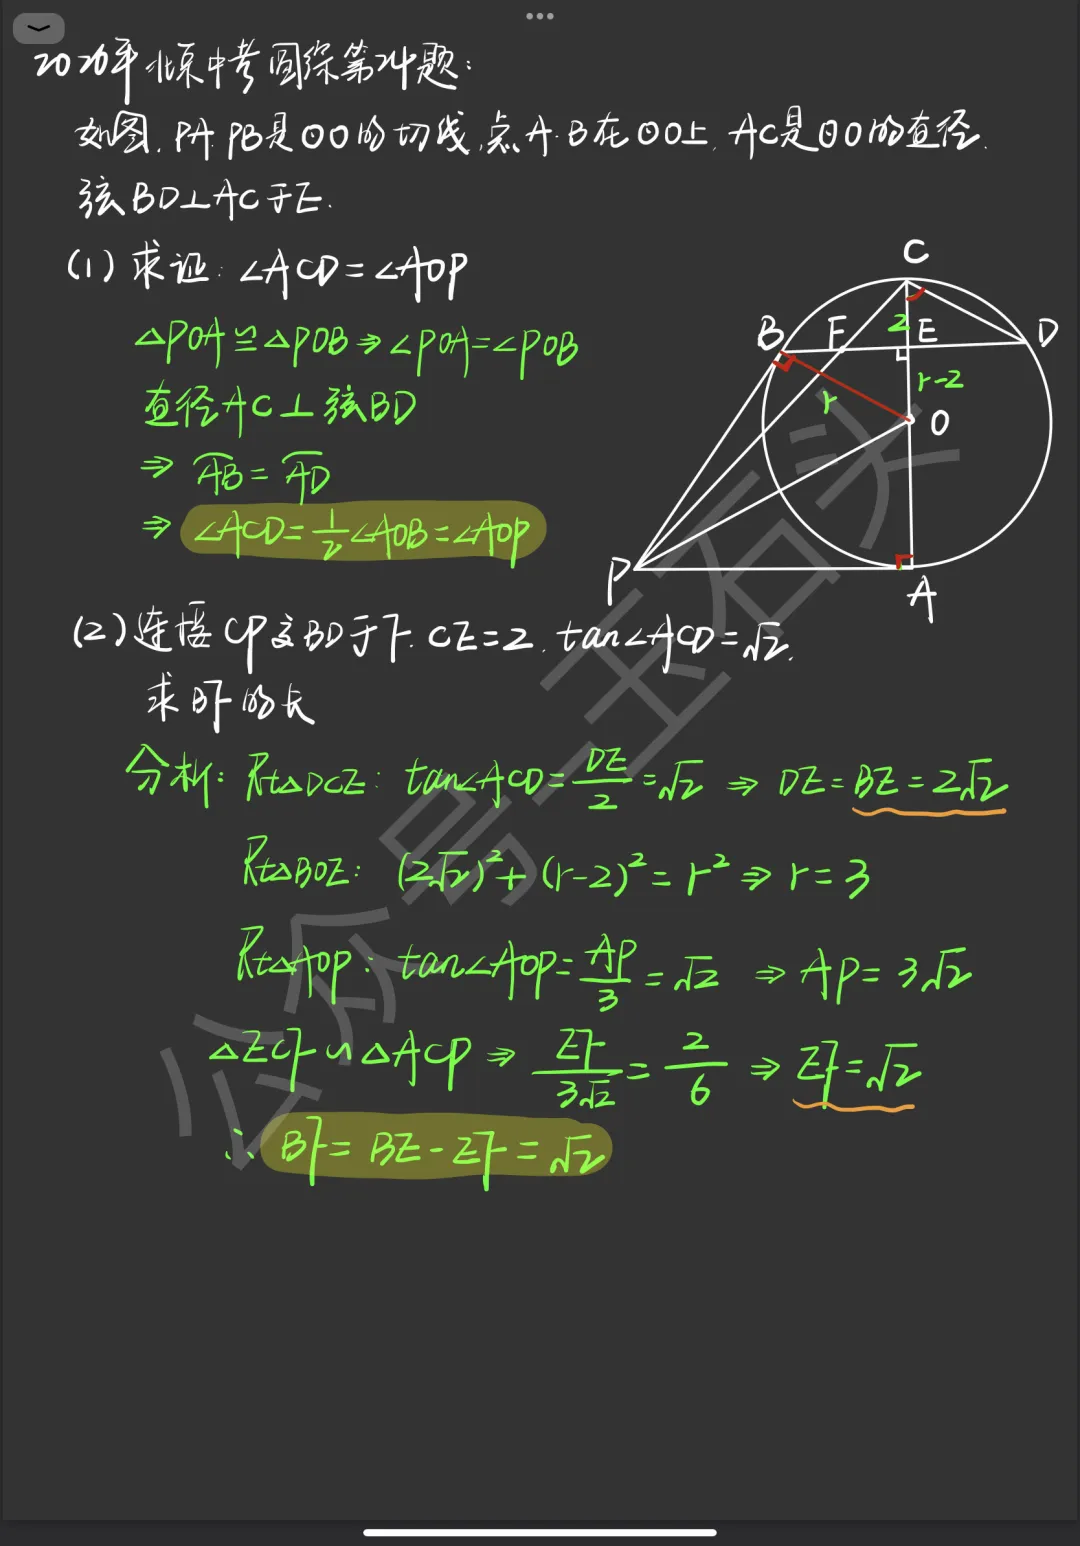 2026年北京中考圆综第24题:
如图, PA. PB是⊙O的切线, 点A. B在⊙O上, AC是⊙O的直径.
弦BD⊥AC于E.
(1) 求证: ∠ACD=∠AOP
△POA≌△POB⇒∠POA=∠POB
直径AC⊥弦BD
⇒ A͡B = A͡D
⇒ ∠ACD=1/2∠AOB=∠AOP
C
B F 2 E D
r-2
r O
P A
(2) 连接CP交BD于F. CE=2. tan∠ACD=√2.
求BF的长
分析: Rt△DCE: tan∠ACD=DE/2=√2 ⇒ DE=BE=2√2
Rt△BOE: (2√2)²+(r-2)²=r² ⇒ r=3
Rt△AOP: tan∠AOP=AP/3=√2 ⇒ AP=3√2
△ECF∽△ACP ⇒ EF/3√2=2/6 ⇒ EF=√2
∴ BF=BE-EF=√2
公众号-玉石头